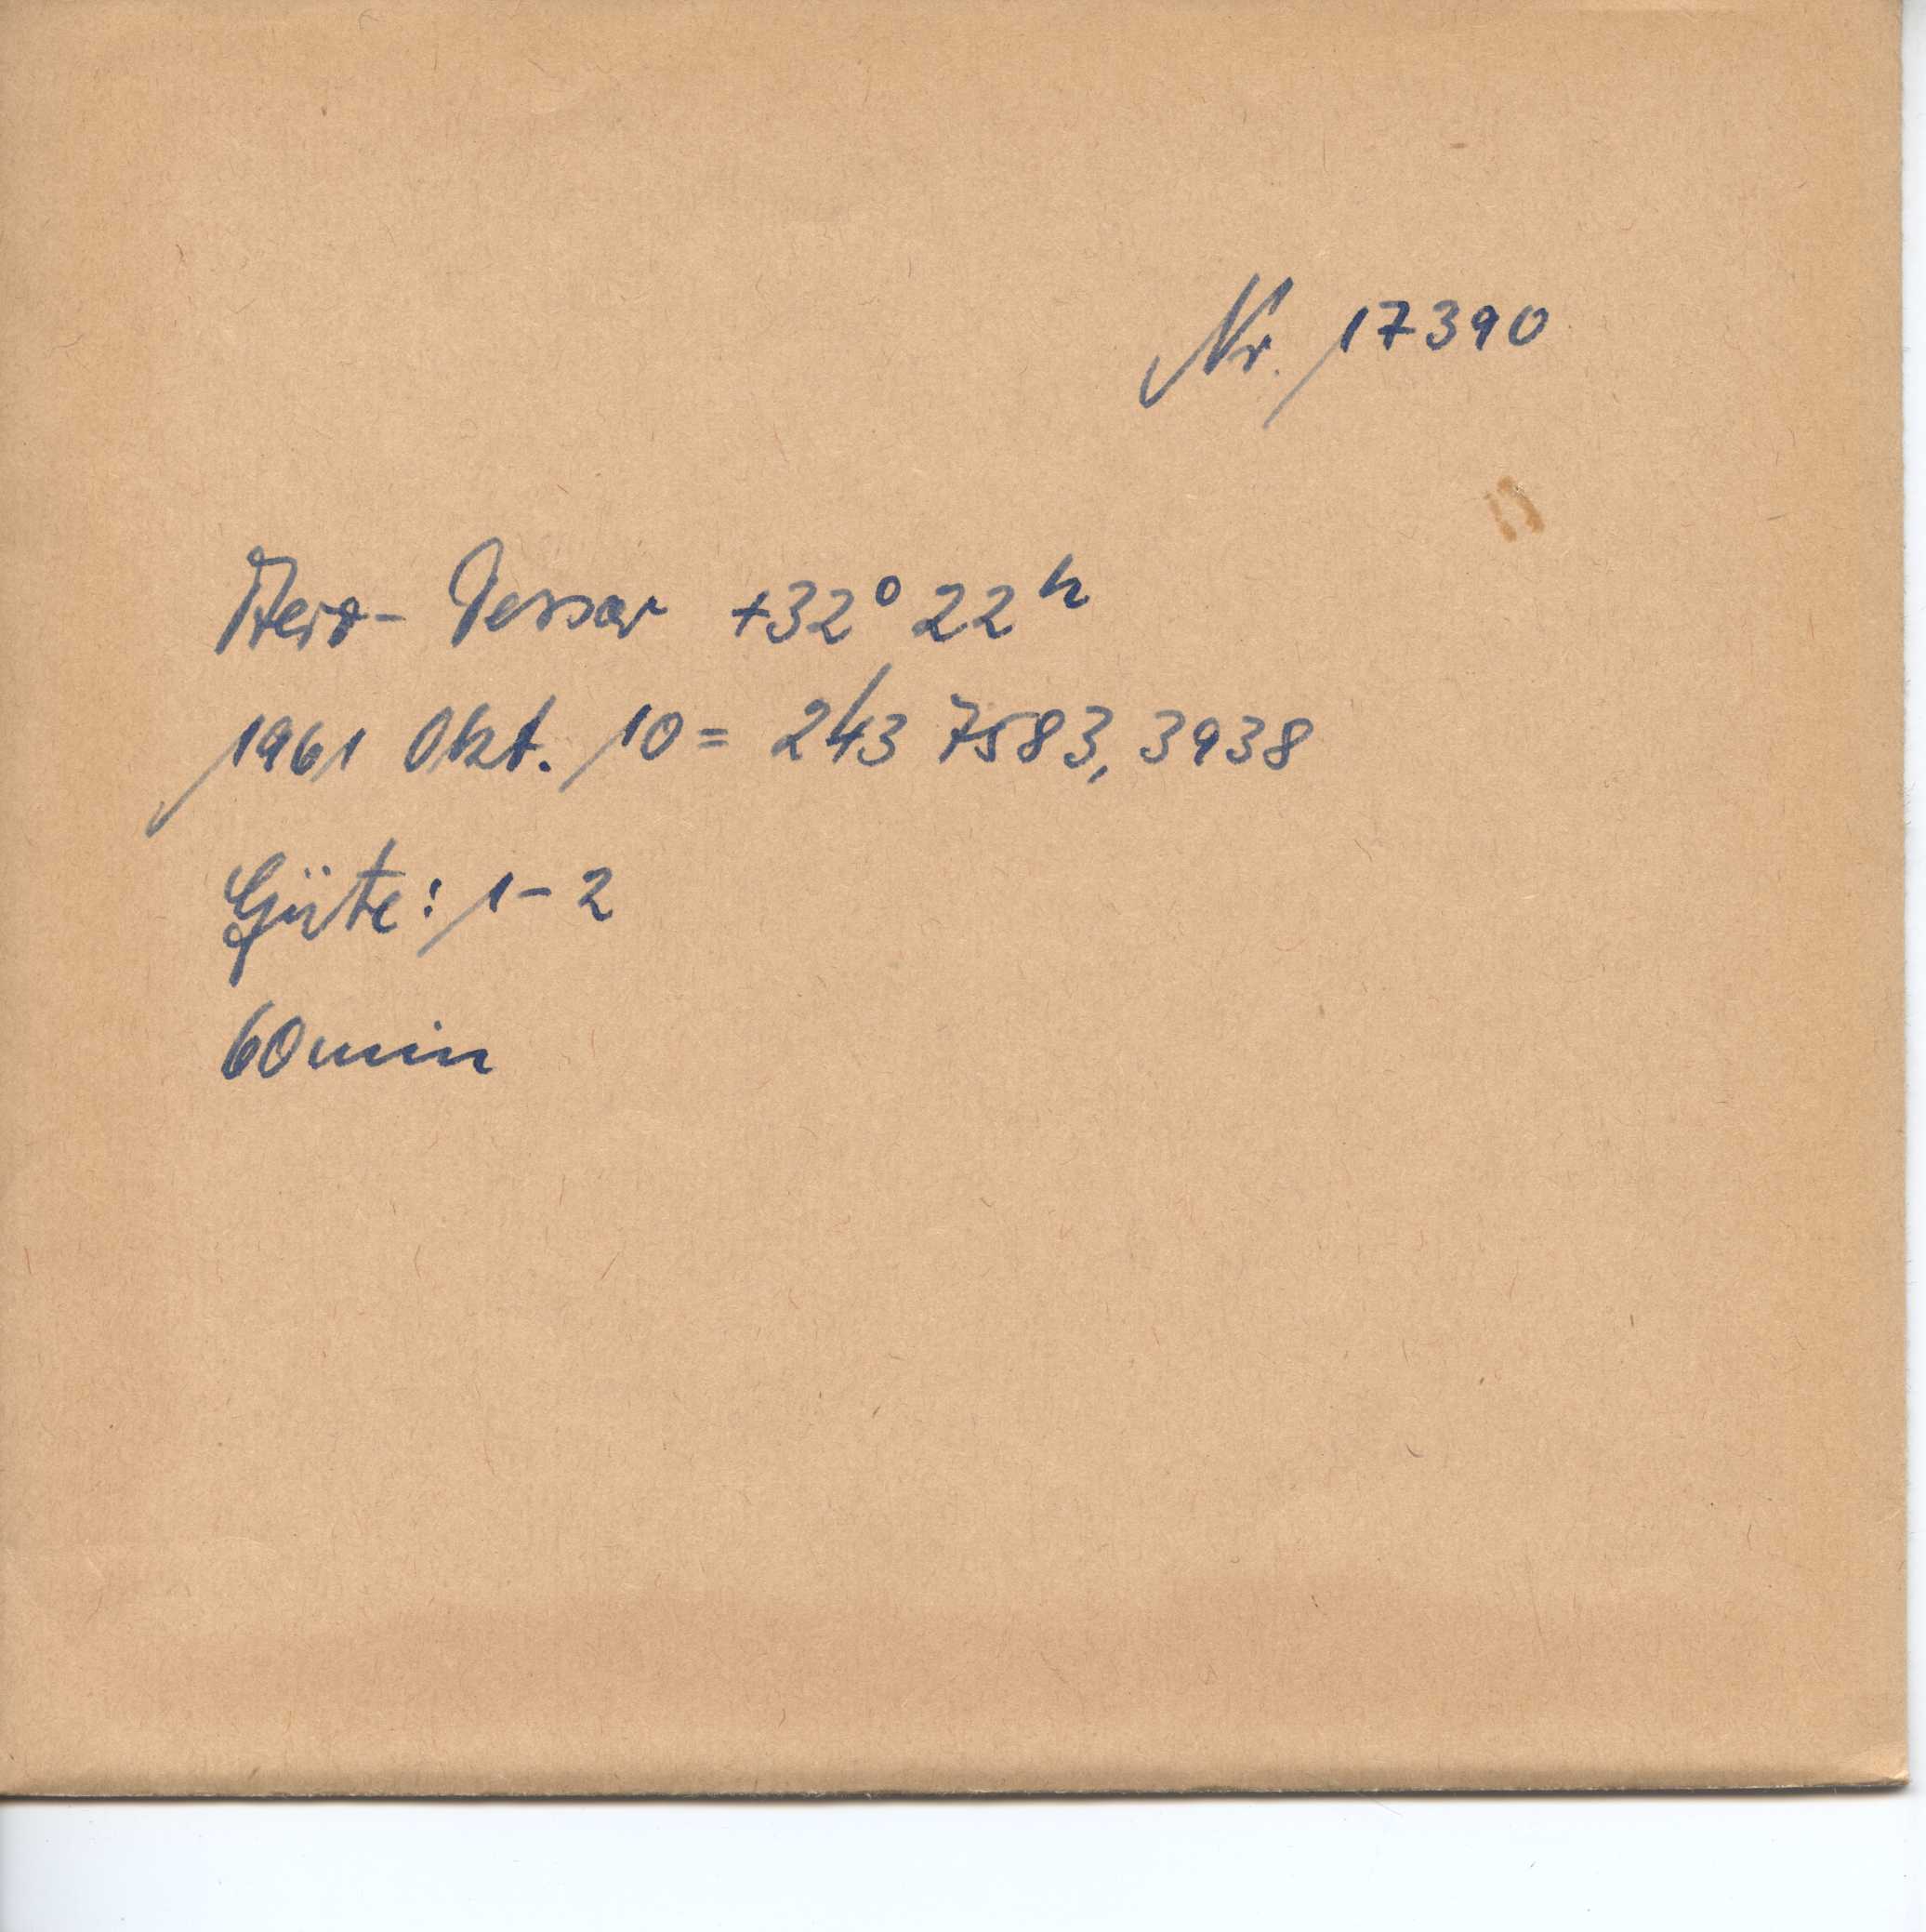 Nr. 17390
Aero-Tessar +32° 22ʰ
1961 Okt. 10 = 243 7583,3938
Güte: 1-2
60min